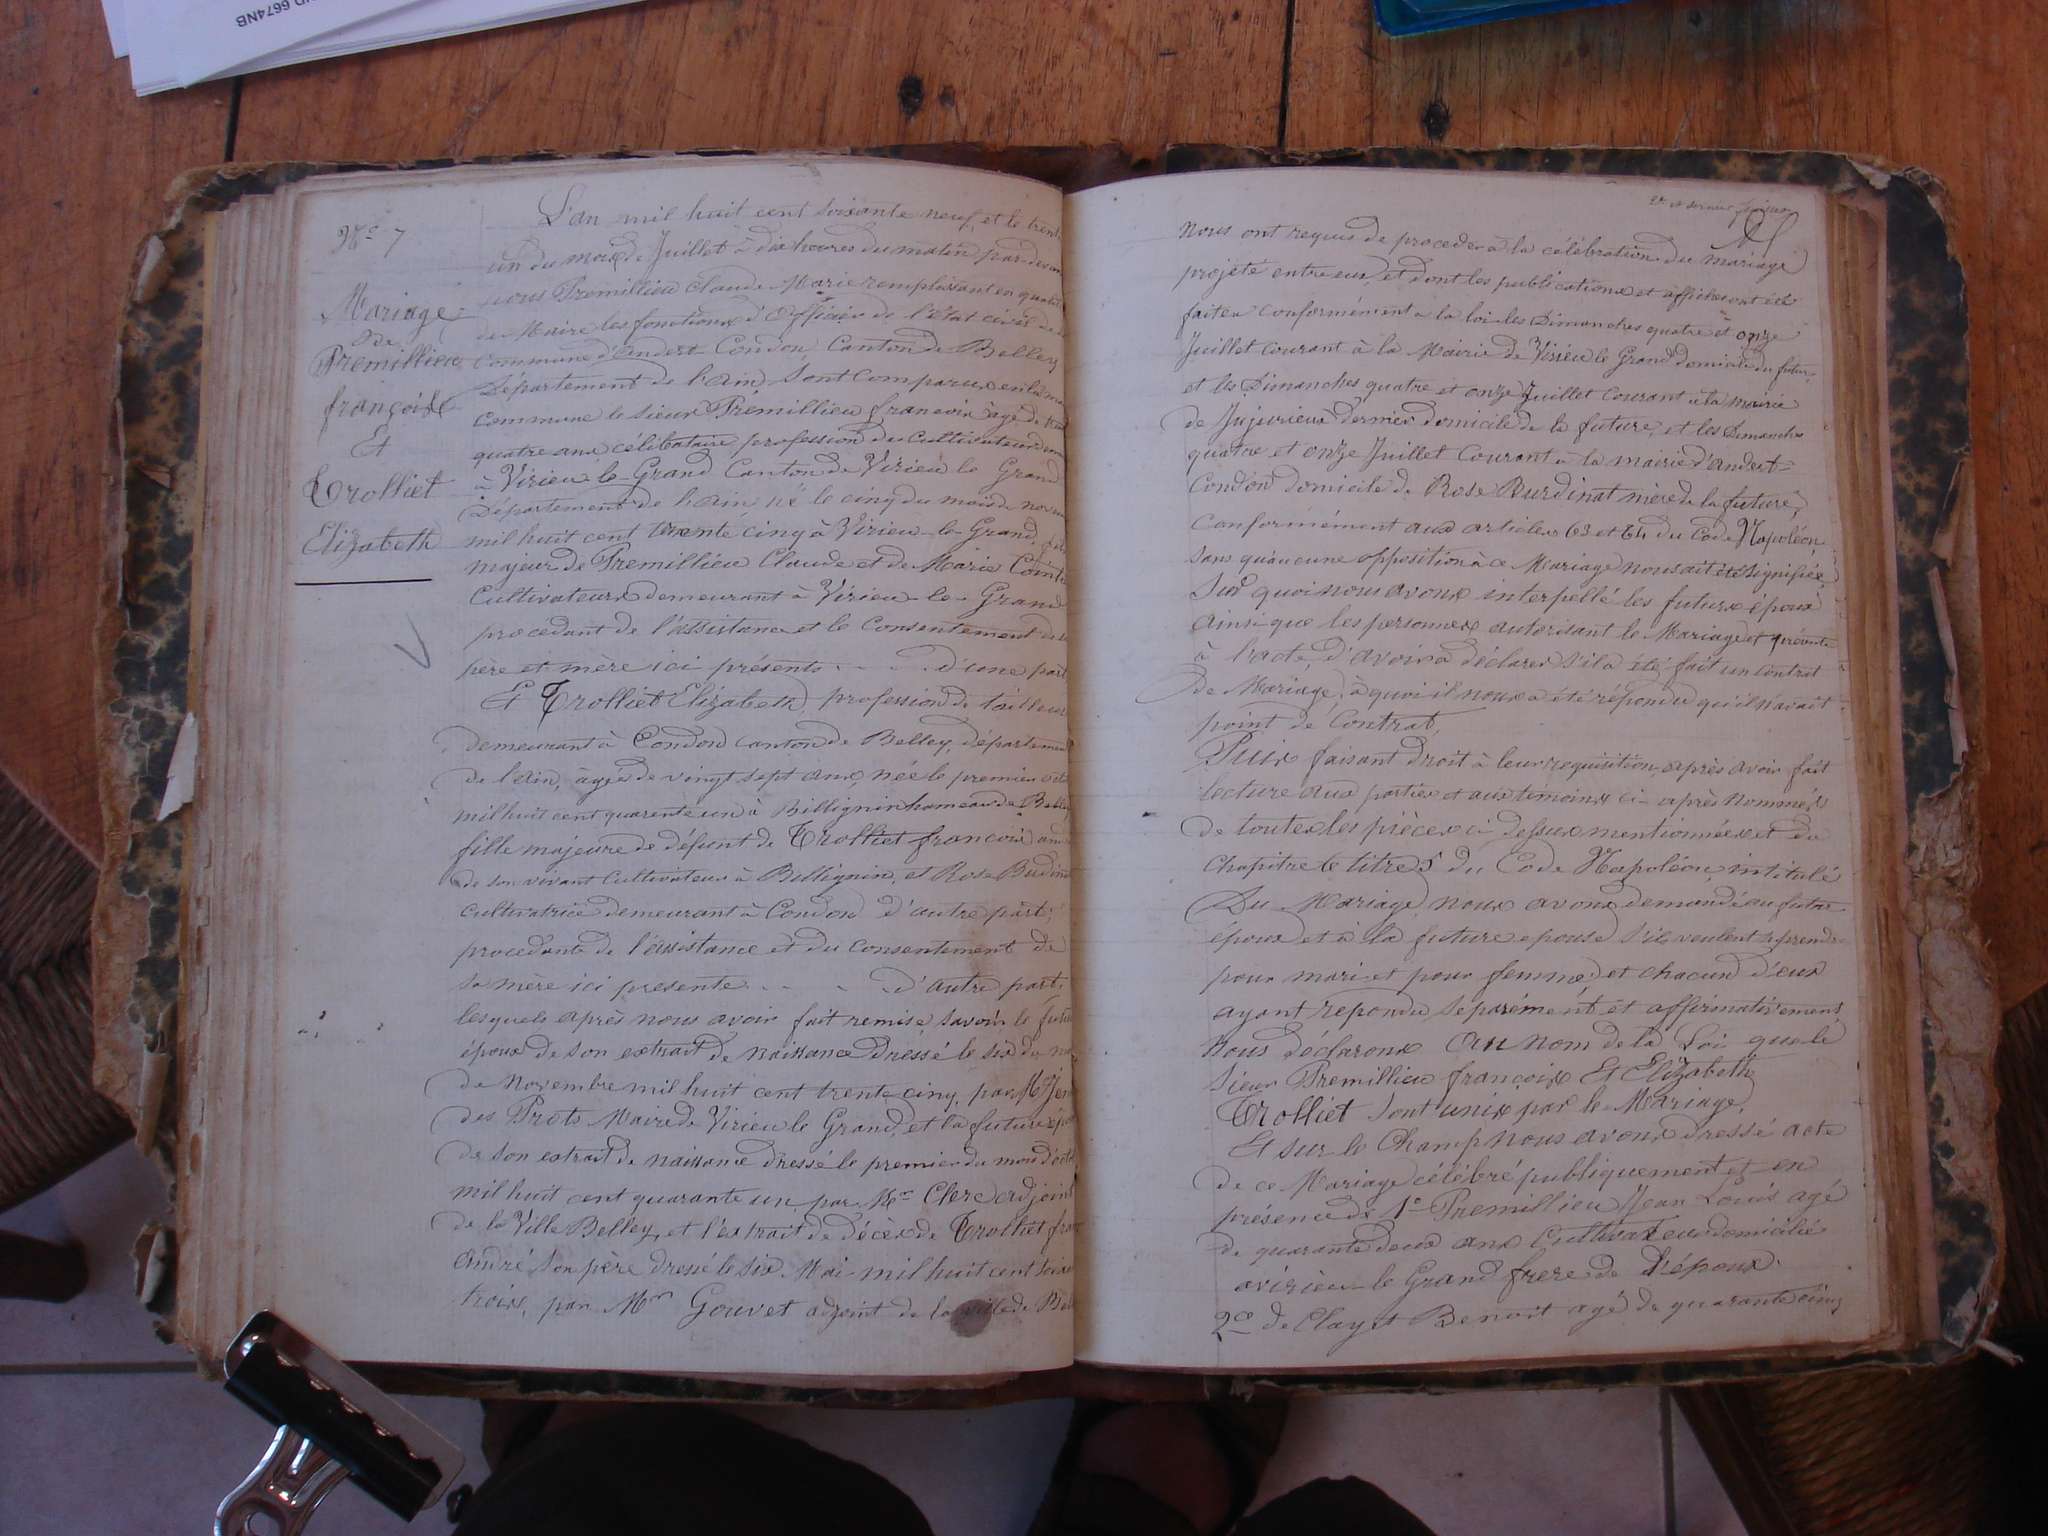 6674NB
N° 7
Mariage
de
Premillieu
françoix
Et
Trolliet
Elizabeth
L'an mil huit cent soixante neuf, et le trente
un du moix de Juillet à dix heures du matin par-devant
nous Premillieu Claude Marie remplissant en qualité
de Maire les fonctions d'Officier de l'état civil de la
Commune d'Andert-Condon, Canton de Belley
Département de l'ain, sont comparux en la
Commune le sieur Premillieu françoix âgé de trente
quatre anx célibataire profession de Cultivateur
à Virieu-le-Grand Canton de Virieu le Grand
Département de l'ain né le cinq du mois de novembre
mil huit cent trente cinq à Virieu-le-Grand, fils
majeur de Premillieu Claude et de Marie
Cultivateurx demeurant à Virieu-le-Grand
procedant de l'assistance et le Consentement de
père et mère ici présents . . . d'une part
Et Trolliet Elizabeth, profession de tailleuse
demeurant à Condon canton de Belley, département
de l'ain, âgée de vingt sept anx, née le premier
mil huit cent quarente un à Billignin hameau de Belley
fille majeure de défunt de Trolliet françoix
de son vivant Cultivateur à Billignin, et Rose
Cultivatrice demeurant à Condon d'autre part,
procedante de l'assistance et du consentement de
sa mère ici presente . . . d'autre part.
lesquels après nous avoir fait remise savoir le futur
époux de son extrait de naissance dressé le six du
de Novembre mil huit cent trente cinq, par Mr
des Prots Maire de Virieu le Grand, et la future
de son extrait de naissance dressé le premier du mois
mil huit cent quarante un par Mr Clerc adjoint
de la Ville Belley, et l'extrait de décèx de Trolliet
André son père dressé le six Mai mil huit cent
troix, par Mr Gouvet adjoint de la ville de
nous ont requis de proceder à la célébration du mariage
projeté entre eux, et dont les publications et affiches ont été
faites conformément à la loi les Dimanches quatre et onze
Juillet courant à la Mairie de Virieu le Grand domicile du futur,
et les Dimanches quatre et onze Juillet Courant à la mairie
de Jujurieux dernier domicile de la future, et les Dimanches
quatre et onze Juillet Courant à la mairie d'andert-
Condon domicile de Rose Burdinat mère de la future,
Conformément aux articles 63 et 64 du Code Napoléon
sans qu'aucune opposition à ce Mariage nous ait été signifiée
Sur quoi nous avonx interpellé les futurx époux
ainsi que les personnex autorisant le Mariage et
à l'acte, d'avoir à déclarer s'il a été fait un contrat
de Mariage, à quoi il nous a été répondu qu'il n'avait
point de Contrat,
Puix faisant droit à leur requisition, après avoir fait
lecture aux partiex et aux temoinx ci-après nommés
de toutes les pièces ci dessus mentionnéex et du
Chapitre 6 titre 5 du Code Napoléon, intitulé
Du Mariage, noux avonx demandé au futur
époux et à la future epouse s'ils veulent se prendre
pour mari et pour femme, et chacun d'eux
ayant repondu séparément et affirmativement
Nous déclaronx Au nom de la Loi que le
sieur Premillieu françoix Et Elizabeth
Trolliet sont unix par le Mariage,
Et sur le Champ nous avonx dressé acte
de ce Mariage célébré publiquement et en
présence de 1° Premillieu Jean Louis agé
de quarante deux anx Cultivateur domicilié
à virieu-le Grand frere de l'époux.
2° de Clayet Benoit agé de quarante cinq